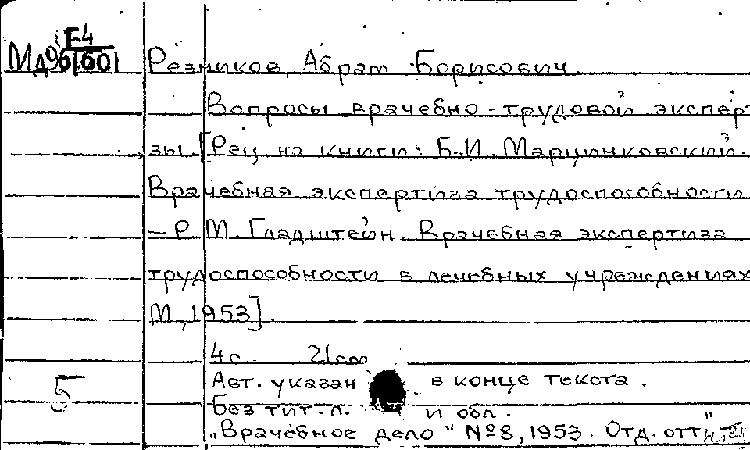 Е4
Мд 96/601
Резников, Абрам Борисович
Вопросы врачебно-трудовой экспер
зы. [Рец. на книги: Б.И. Марцинковский.
Врачебная экспертиза трудоспособности
— Р.М. Гладштейн. Врачебная экспертиза
трудоспособности в лечебных учреждениях
М., 1953].
4с. 21см
Авт. указан в конце текста.
5
Без тит. л. и обл.
"Врачебное дело" №8, 1953. Отд. отт